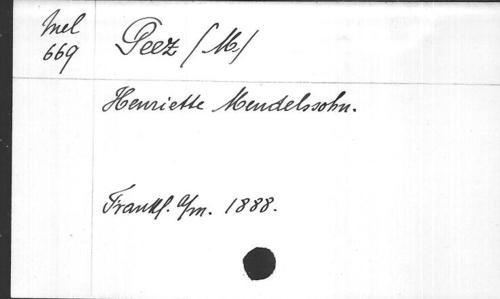 Mel
669
Peez (M.)
Henriette Mendelssohn.
Frankf. a/m. 1888.